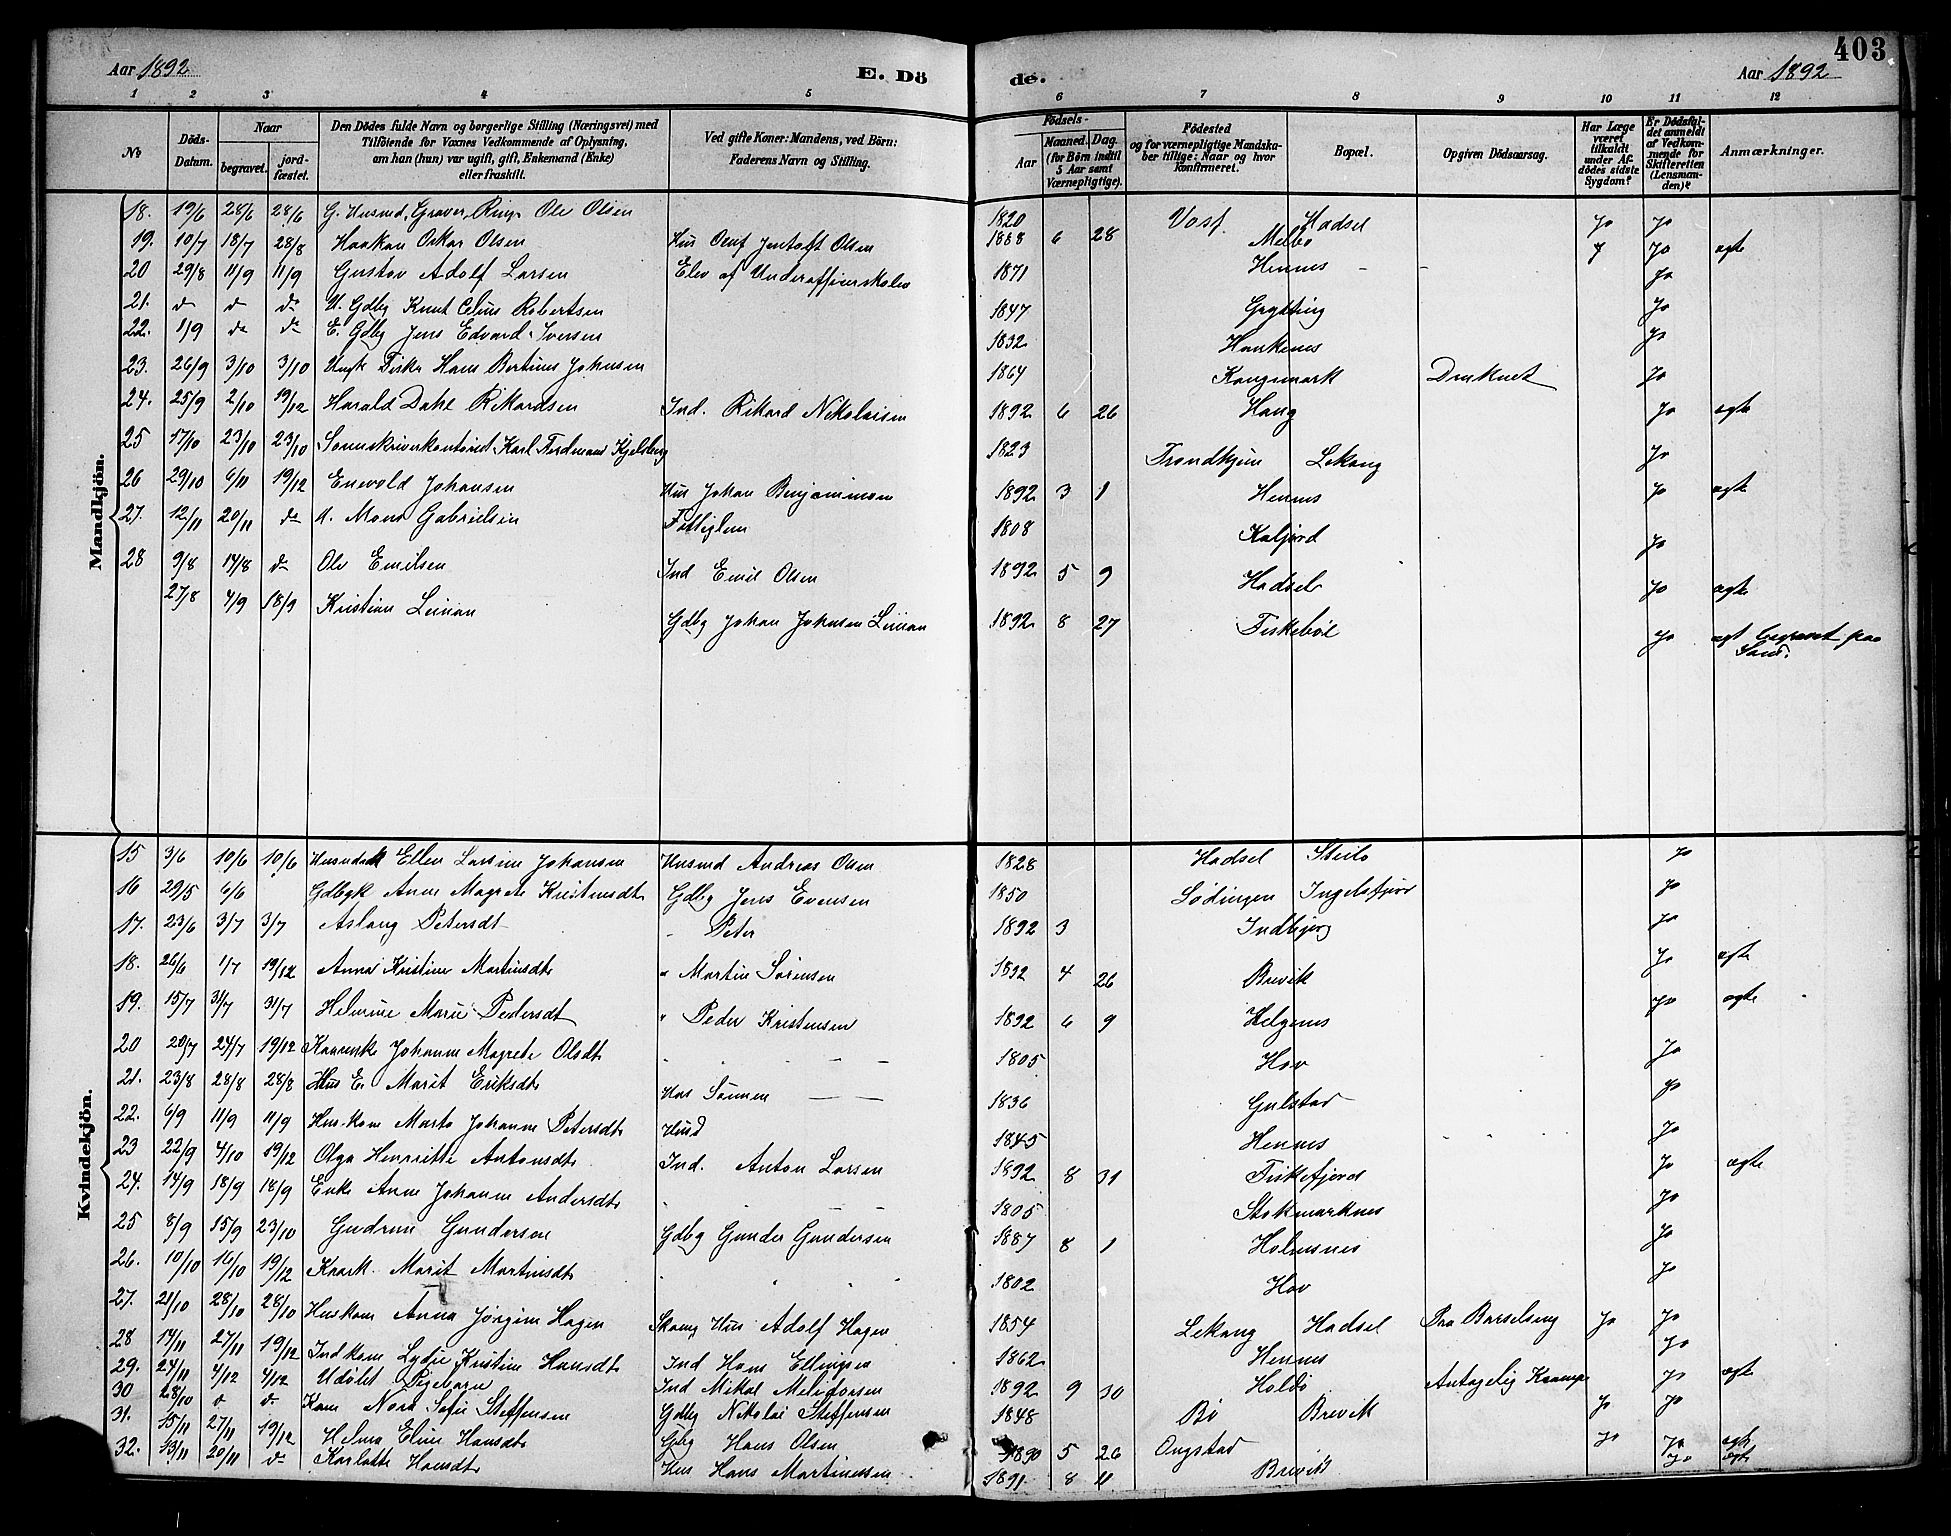 403
Aar 1892
E. Dö
de.
Aar 1892
1 2 3 4 5 6 7 8 9 10 11 12
No
Döds-Datum.
Naar
begravet.
jord-fæstet.
Den Dödes fulde Navn og borgerlige Stilling (Næringsvei) med
Tilföiende for Voxnes Vedkommende af Oplysning,
om han (hun) var ugift, gift, Enkemand (Enke)
eller fraskilt.
Ved gifte Koner: Mandens, ved Börn:
Faderens Navn og Stilling.
Födsels-
Aar
Maaned. Dag.
(for Börn indtil
5 Aar samt
Værnepligtige).
Födested
og for værnepligtige Mandska-
ber tillige: Naar og hvor
konfirmeret.
Bopæl.
Opgiven Dödsaarsag.
Har Læge
været
tilkaldt
under Af-
dödes sidste
Sygdom?
Er Dödsfal-
det anmeldt
af Vedkom-
mende for
Skifteretten
(Lensman-
den)?
Anmærkninger.
Mandkjön.
18. 19/6 28/6 28/6 G. Husmd, Graver, Ole Olsen 1820 Vosf. Hadsel Jo Jo
19. 10/7 18/7 28/8 Haakan Oskar Olsen Hus Oluf Jentoft Olsen 1888 6 28 Melbo Jo ægte
20 29/8 11/9 11/9 Gustav Adolf Larsen Elev af Underofficerskolen 1871 Hennes - - Jo
21. do do do U. Gdbg Knut Celius Robertsen 1847 Grytting Jo
22. 1/9 do do E. Gdbg Jens Edvard Iversen 1832 Haukenes Jo
23. 26/9 3/10 3/10 Ungk Fisker Hans Bertinus Johnsen 1864 Kongsmark Druknet Jo
24. 25/9 2/10 19/12 Harald Dahl Rikardsen Ind. Rikard Nikolaisen 1892 6 26 Haug Jo ægte
25 17/10 23/10 23/10 Sorenskriverkontorist Karl Ferdinand Kjelsberg 1823 Trondhjem Lekang Jo
26 29/10 6/11 19/12 Enevold Johansen Hus Johan Benjaminsen 1892 3 1 Hennes Jo ægte
27. 12/11 20/11 do U. Mons Gabrielsen Fattiglem 1808 Kaljord Jo
28 9/8 14/8 do Ole Emilsen Ind Emil Olsen 1892 5 9 Hadsel Jo ægte
27/8 4/9 18/9 Kristian Gdbg Johan Johnsen 1892 8 27 Fiskebøl Jo ægt begravet paa
Sand.
Kvindekjön.
15 3/6 10/6 10/6 Ellen Larsine Johansen Husmd Andreas Olsen 1828 Hadsel Steilo Jo
16 29/5 6/6 Gdbgk Anne Magrete Kristensdt Gdbg Jens Evensen 1850 Lødingen Ingelsfjord Jo
17. 23/6 3/7 3/7 Aslaug Petersdt " Peter 1892 3 Indbjerg Jo
18. 26/6 1/7 19/12 Anna Kristine Martinsdt " Martin Sørensen 1892 4 26 Brevik Jo ægte
19. 15/7 31/7 31/7 Helmine Marie Pedersdt " Peder Kristensen 1892 6 9 Helgenes Jo ægte
20 20/7 24/7 19/12 Johanne Magrete Olsdt 1805 Hov Jo
21. 23/8 28/8 28/8 Hus E. Marit Eriksdt Hos Sønnen 1836 Gulstad Jo
22. 6/9 11/9 11/9 Hus-kone Marta Johanne Petersdt Husd 1845 Hennes Jo
23 22/9 4/10 19/12 Olga Henriette Antonsdt Ind. Anton Larsen 1892 8 31 Fiskefjord Jo ægte
24. 14/9 18/9 18/9 Enke Anne Johanne Andersdt 1805 Stokmarknes Jo
25 8/9 15/9 23/10 Gudrun Gundersen Gdbg Gunder Gundersen 1887 8 1 Holmsnes Jo
26. 10/10 16/10 19/12 Marit Martinsdt 1802 Hov Jo
27. 21/10 28/10 28/10 Huskone Anna Jørgine Hagen Hus Adolf Hagen 1854 Lekang Hadsel Barselseng Jo Jo
28 14/11 27/11 19/12 Indkone Lydie Kristine Hansdt Ind Hans Ellingsen 1862 Hennes Jo
29. 24/11 4/12 4/12 Udøbt Pigebarn Ind Mikal Meliforsen 1892 9 30 Holdø Antagelig Krampe Jo ægte
30 28/10 do do Kone Nora Sofie Steffensen Gdbg Nikolai Steffensen 1848 Bø Brevik Jo Jo
31. 15/11 27/11 19/12 Helma Eline Hansdt Gbg Hans Olsen 1890 5 26 Ongstad Jo Jo ægte
32. 13/11 20/11 do Karlotte Hansdt Hus Hans Martinussen 1891 8 11 Brevik Jo ægte